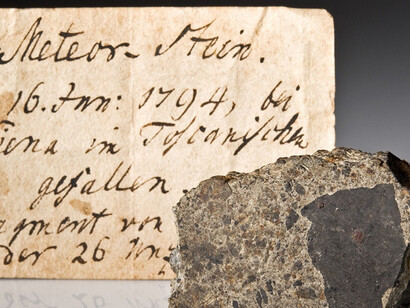 Meteor-Stein.
16. Jun: 1794, bei
iena in Toscanischen
gefallen
agment von
der 26 Unz